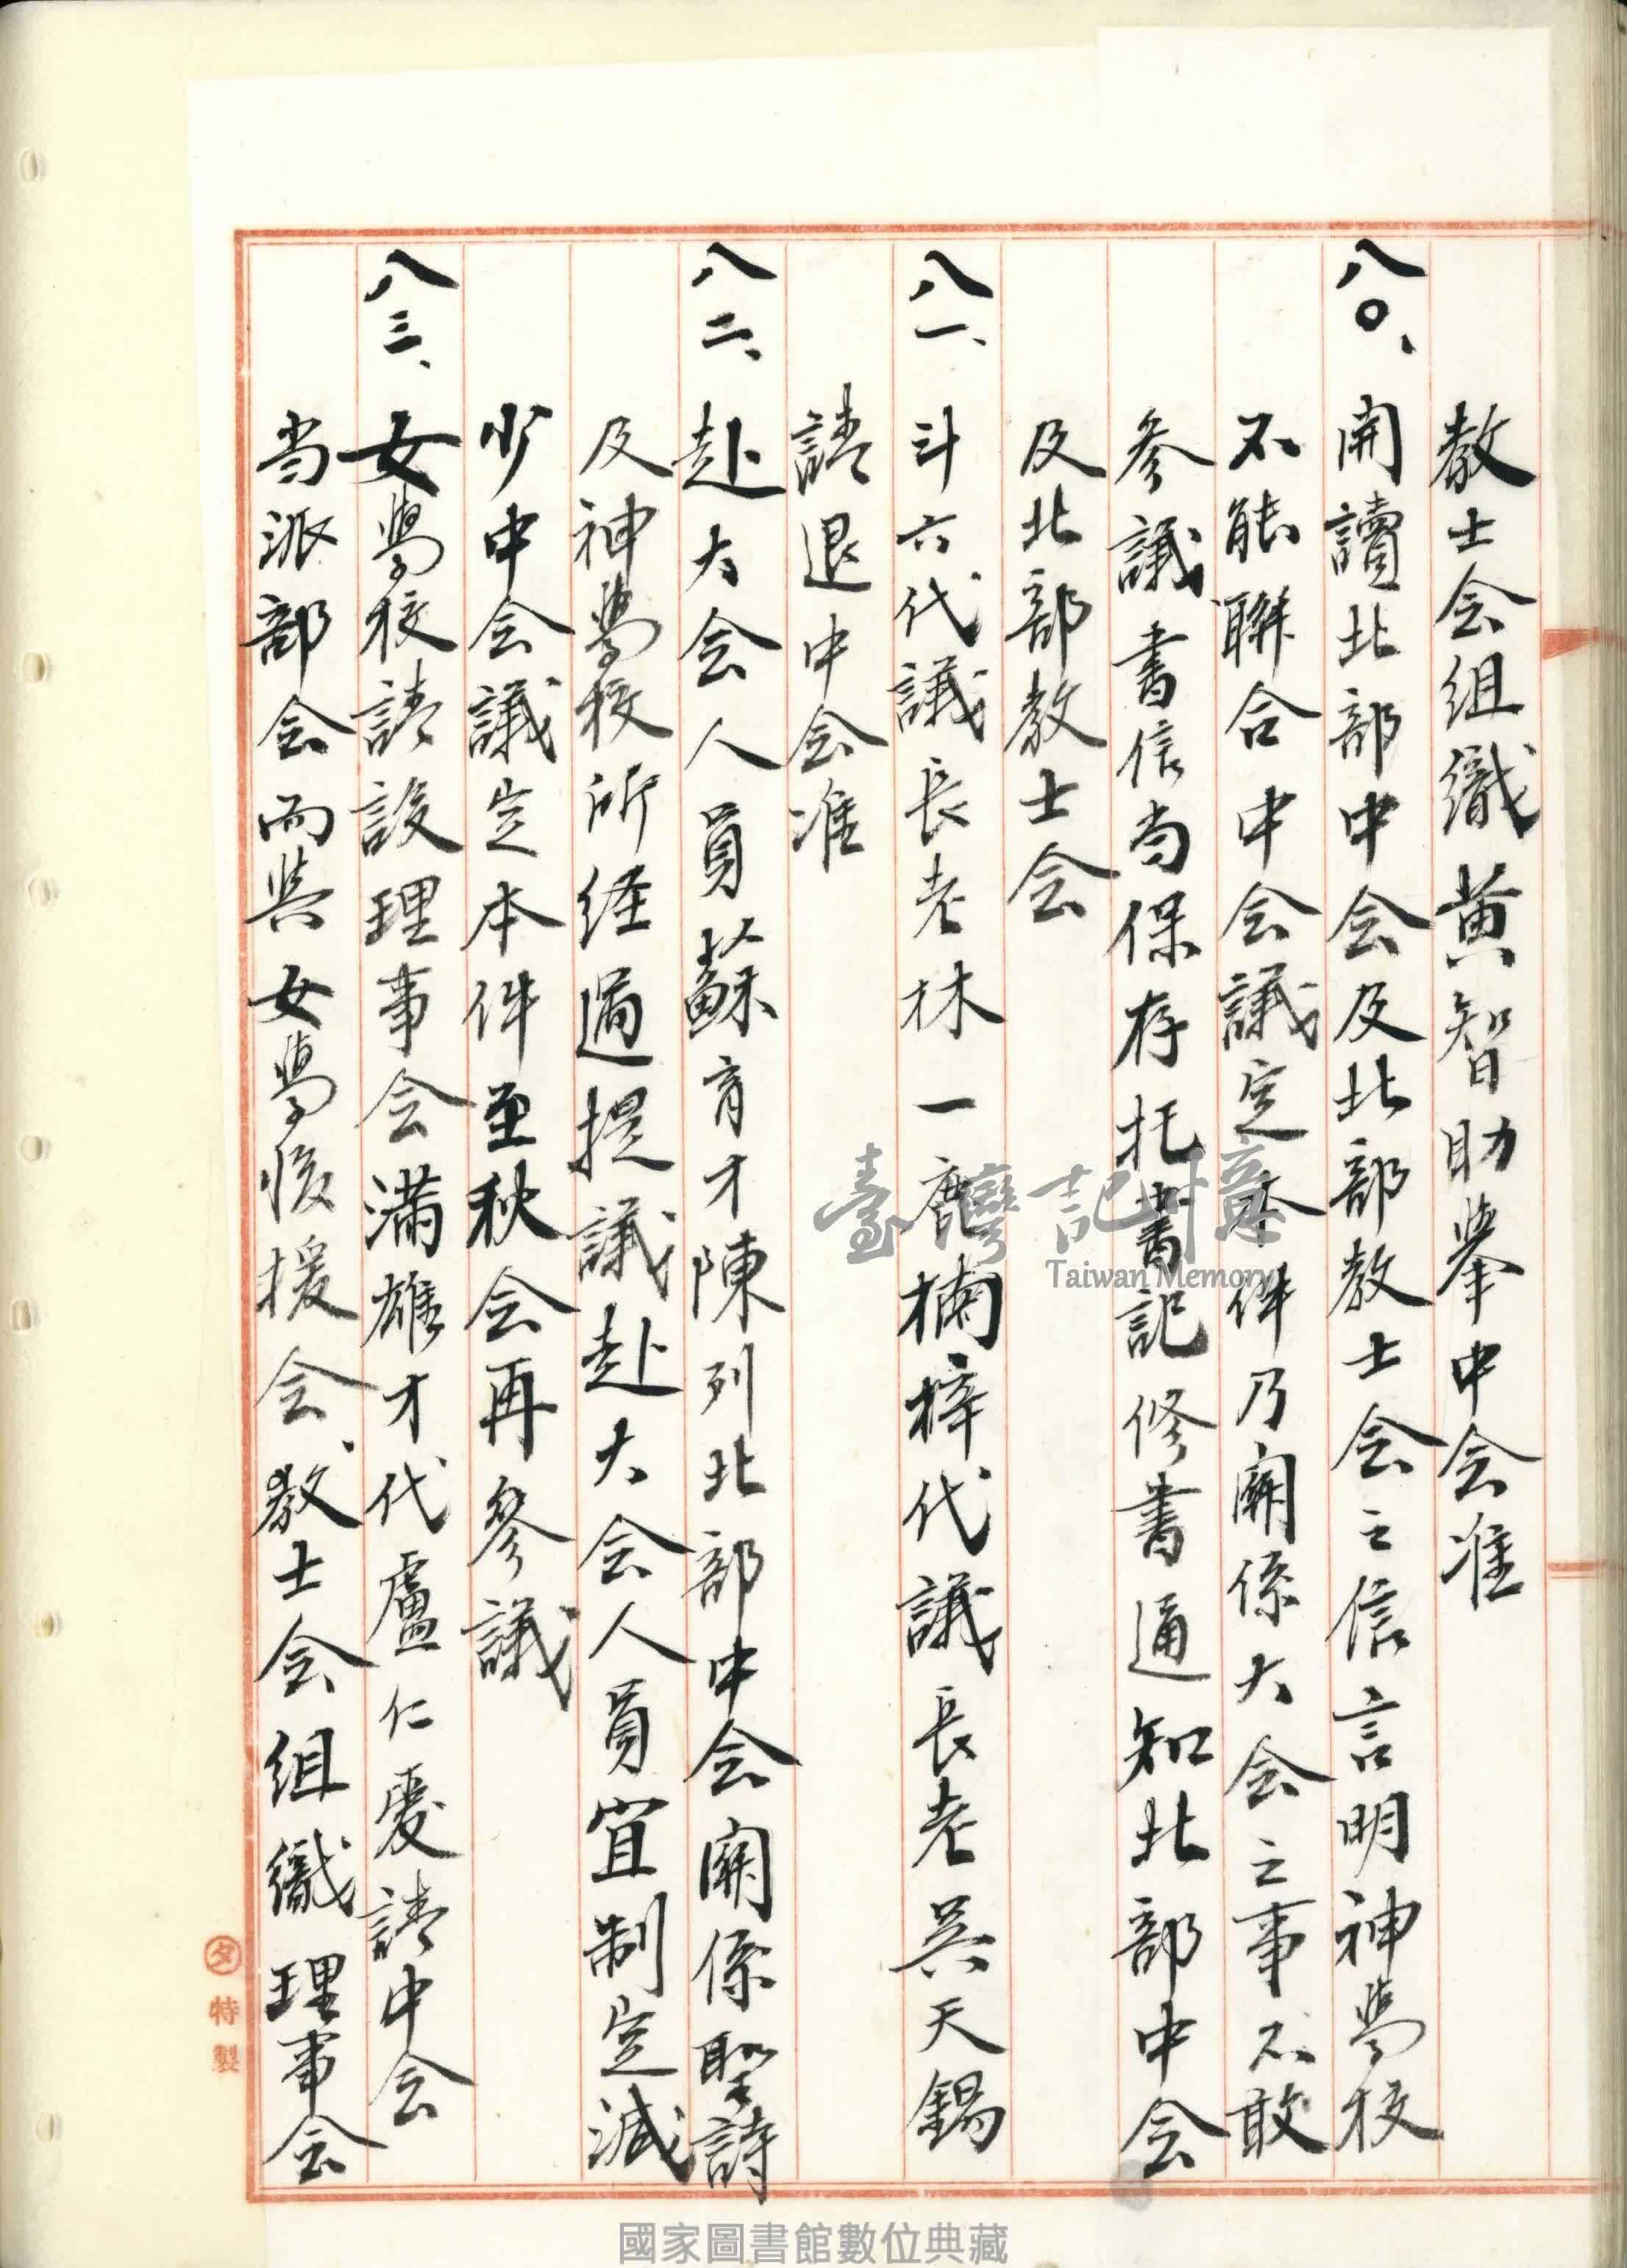 教士会組織黄智助舉中会准
八〇、開讀北部中会及北部教士会之信言明神學校
不能聯合中会議定本件乃關係大会之事不敢
参議書信尚保存托書記修書通知北部中会
及北部教士会
八一、斗六代議長老林一鹿楠梓代議長老吳天錫
請退中会准
八二、赴大会人員蘇育才陳列北部中会關係聖詩
及神學校所経過提議赴大会人員宜制定減
少中会議定本件至秋会再參議
八三、女學校請設理事会滿雄才代盧仁愛請中会
当派部会而與女學後援会教士会組織理事会
臺灣記憶
Taiwan Memory
タ特製
國家圖書館數位典藏